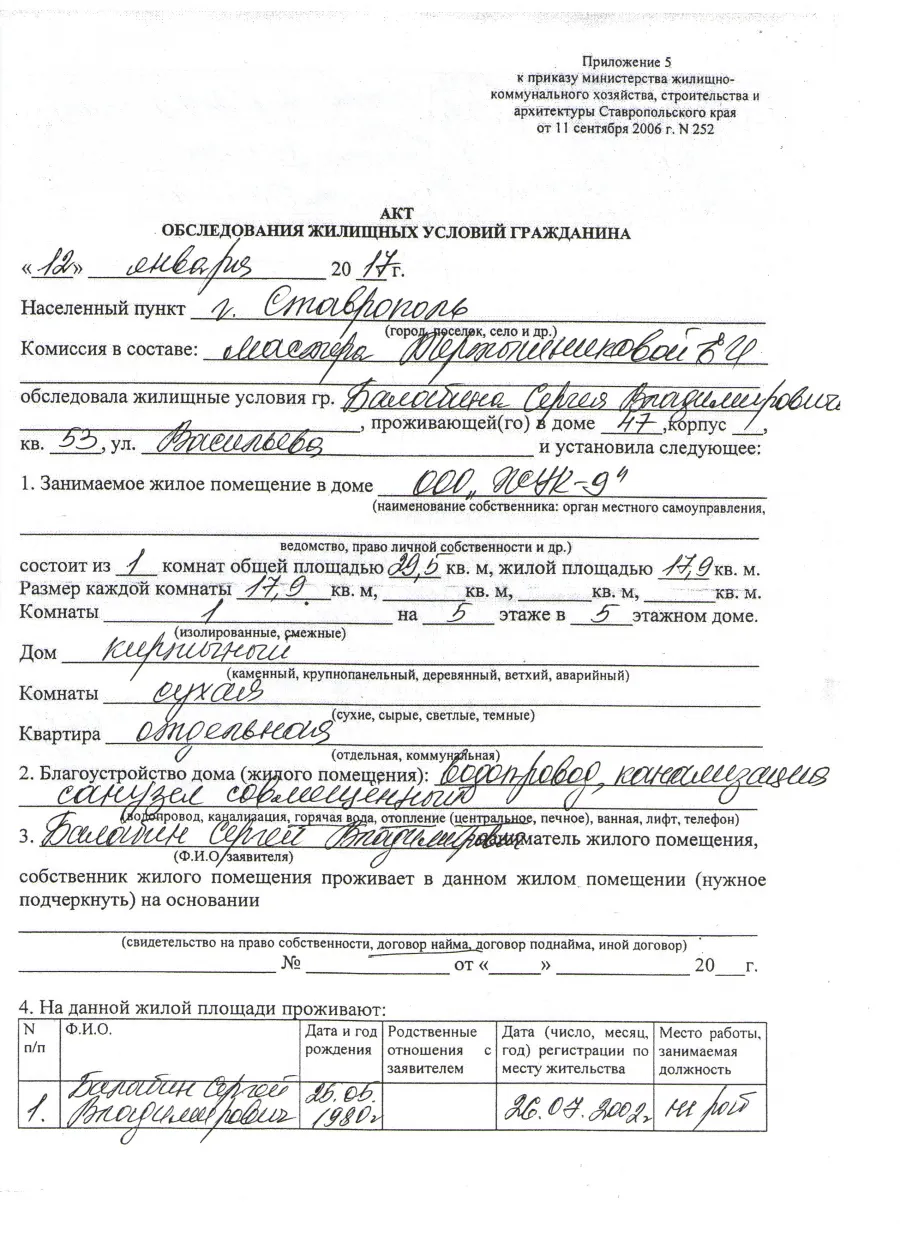 Приложение 5
к приказу министерства жилищно-
коммунального хозяйства, строительства и
архитектуры Ставропольского края
от 11 сентября 2006 г. N 252
АКТ
ОБСЛЕДОВАНИЯ ЖИЛИЩНЫХ УСЛОВИЙ ГРАЖДАНИНА
«12» января 20 17 г.
Населенный пункт г. Ставрополь
(город, поселок, село и др.)
Комиссия в составе: мастера
обследовала жилищные условия гр. Балабина Сергея Владимировича
, проживающей(го) в доме 47, корпус /,
кв. 53, ул. Васильева и установила следующее:
1. Занимаемое жилое помещение в доме ООО „ЖУК-9"
(наименование собственника: орган местного самоуправления,
ведомство, право личной собственности и др.)
состоит из 1 комнат общей площадью 29,5 кв. м, жилой площадью 17,9 кв. м.
Размер каждой комнаты 17,9 кв. м, кв. м, кв. м, кв. м.
Комнаты 1 на 5 этаже в 5 этажном доме.
(изолированные, смежные)
Дом кирпичный
(каменный, крупнопанельный, деревянный, ветхий, аварийный)
Комнаты сухая
(сухие, сырые, светлые, темные)
Квартира отдельная
(отдельная, коммунальная)
2. Благоустройство дома (жилого помещения): водопровод, канализация
санузел совмещенный
(водопровод, канализация, горячая вода, отопление (центральное, печное), ванная, лифт, телефон)
3. Балабин Сергей Владимирович наниматель жилого помещения,
(Ф.И.О. заявителя)
собственник жилого помещения проживает в данном жилом помещении (нужное
подчеркнуть) на основании
(свидетельство на право собственности, договор найма, договор поднайма, иной договор)
№ от « » 20 г.
4. На данной жилой площади проживают:
N п/п Ф.И.О. Дата и год рождения Родственные отношения с заявителем Дата (число, месяц, год) регистрации по месту жительства Место работы, занимаемая должность
1. Балабин Сергей Владимирович 25.05. 1980г 26.07.2002г не раб